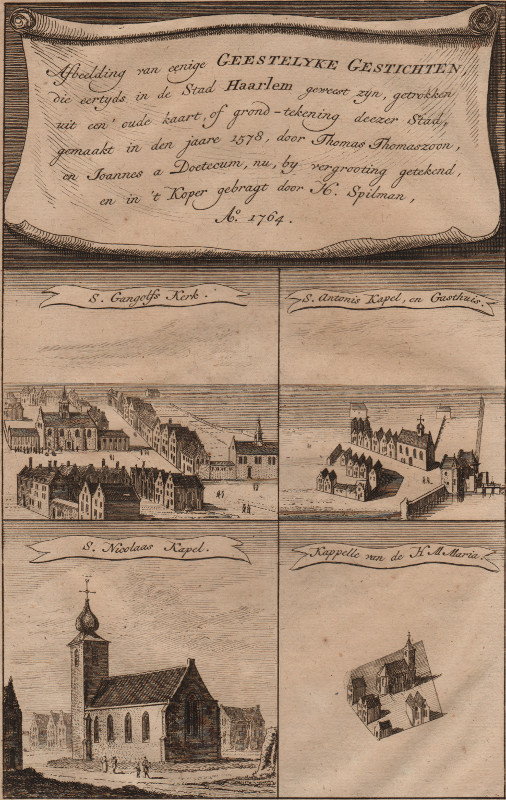 Afbeelding van eenige GEESTELYKE GESTICHTEN,
die eertyds in de Stad Haarlem geweest zyn, getrokken
uit een' oude kaart, of grond-tekening deezer Stad,
gemaakt in den jaare 1578, door Thomas Thomaszoon,
en Joannes a Doetecum, nu, by vergrooting getekend,
en in 't Koper gebragt door H. Spilman,
Ao. 1764.
S. Gangolfs Kerk.
S. Antonis Kapel, en Gasthuis.
S. Nicolaas Kapel.
Kappelle van de H. M. Maria.